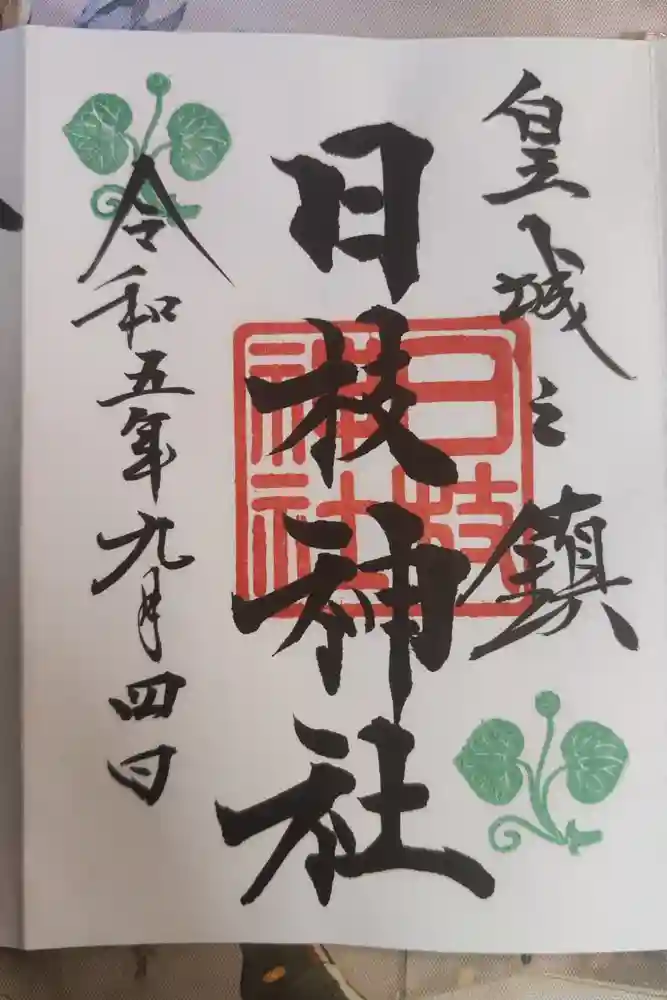 皇城之鎮
日枝神社
日枝
神社
令和五年九月四日